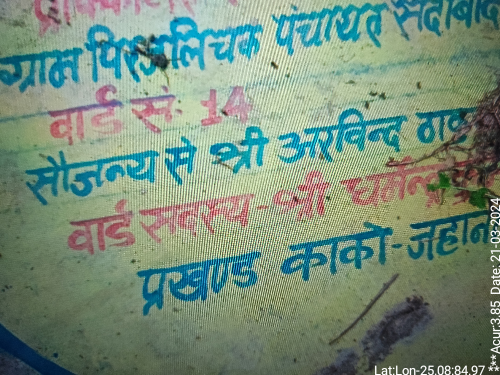 ग्राम पिरजलिचक पंचायत सैदाबाद
वार्ड सं: 14
सौजन्य से श्री अरविन्द
वार्ड सदस्य-श्री
प्रखण्ड काको-जहाना
Lat:Lon-25.08:84.97
***Acur:3.85 Date: 21-03-2024